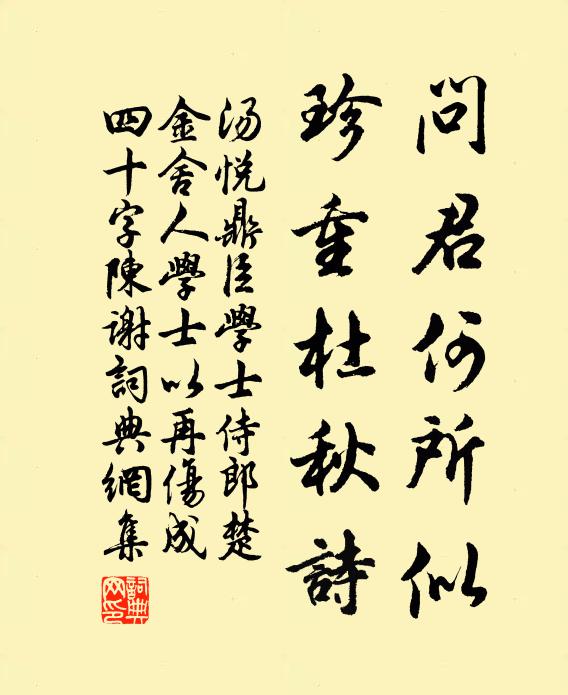 問君何所似
珍重杜秋詩
湯悅鼎臣學士侍郎楚
金舍人學士以再傷成
四十字陳謝詞典網集
詞典網印